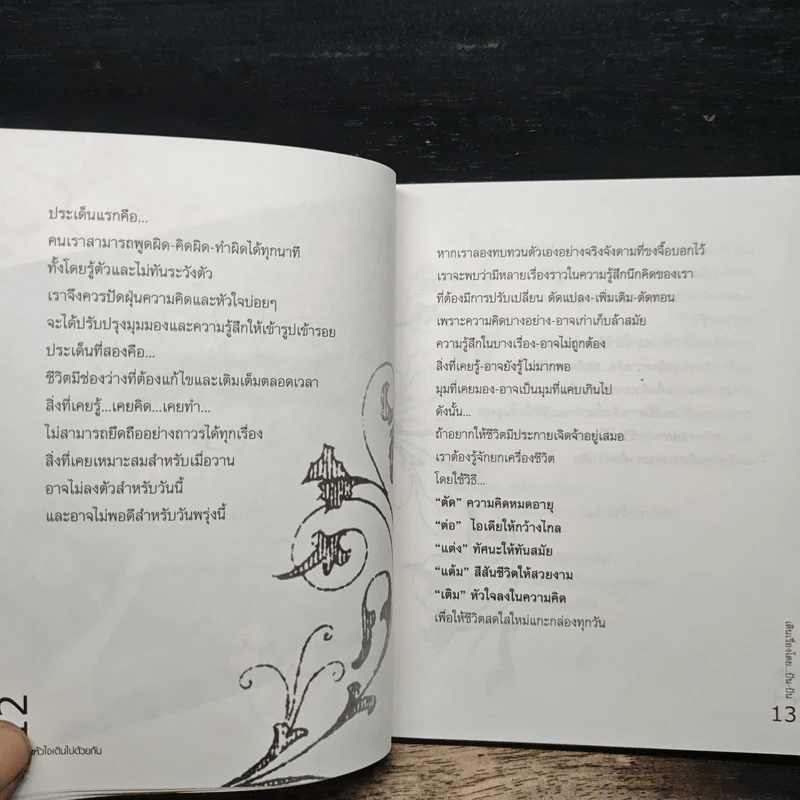 ประเด็นแรกคือ...
คนเราสามารถพูดผิด-คิดผิด-ทำผิดได้ทุกนาที
ทั้งโดยรู้ตัวและไม่ทันระวังตัว
เราจึงควรปัดฝุ่นความคิดและหัวใจบ่อยๆ
จะได้ปรับปรุงมุมมองและความรู้สึกให้เข้ารูปเข้ารอย
ประเด็นที่สองคือ...
ชีวิตมีช่องว่างที่ต้องแก้ไขและเติมเต็มตลอดเวลา
สิ่งที่เคยรู้...เคยคิด...เคยทำ...
ไม่สามารถยึดถืออย่างถาวรได้ทุกเรื่อง
สิ่งที่เคยเหมาะสมสำหรับเมื่อวาน
อาจไม่ลงตัวสำหรับวันนี้
และอาจไม่พอดีสำหรับวันพรุ่งนี้
12
หัวใจเดินไปด้วยกัน
หากเราลองทบทวนตัวเองอย่างจริงจังตามที่ขงจื๊อบอกไว้
เราจะพบว่ามีหลายเรื่องราวในความรู้สึกนึกคิดของเรา
ที่ต้องมีการปรับเปลี่ยน ดัดแปลง-เพิ่มเติม-ตัดทอน
เพราะความคิดบางอย่าง-อาจเก่าเก็บล้าสมัย
ความรู้สึกในบางเรื่อง-อาจไม่ถูกต้อง
สิ่งที่เคยรู้-อาจยังรู้ไม่มากพอ
มุมที่เคยมอง-อาจเป็นมุมที่แคบเกินไป
ดังนั้น...
ถ้าอยากให้ชีวิตมีประกายเจิดจ้าอยู่เสมอ
เราต้องรู้จักยกเครื่องชีวิต
โดยใช้วิธี...
“ตัด” ความคิดหมดอายุ
“ต่อ” ไอเดียให้กว้างไกล
“แต่ง” ทัศนะให้ทันสมัย
“แต้ม” สีสันชีวิตให้สวยงาม
“เติม” หัวใจลงในความคิด
เพื่อให้ชีวิตสดใสใหม่แกะกล่องทุกวัน
เดินเรื่องโดย...ปัน-ปัน
13